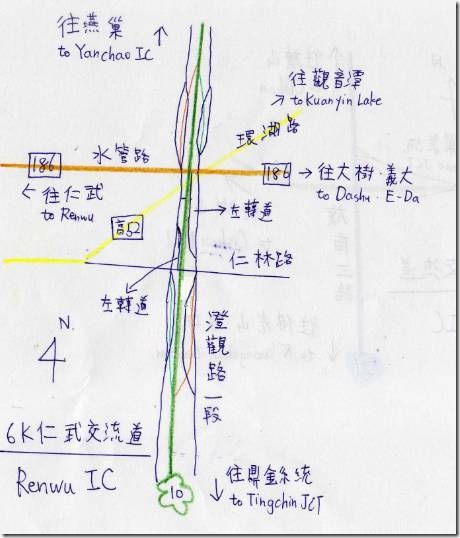 往燕巢
to Yanchao IC
往觀音潭
to Kuanyin Lake
環湖路
水管路
186
186
往大樹·義大
to Dashu·E-Da
往仁武
to Renwu
高52
左轉道
仁林路
左轉道
澄觀路一段
N.
6K仁武交流道
Renwu IC
10
往鼎金系統
to Tingchin JCT